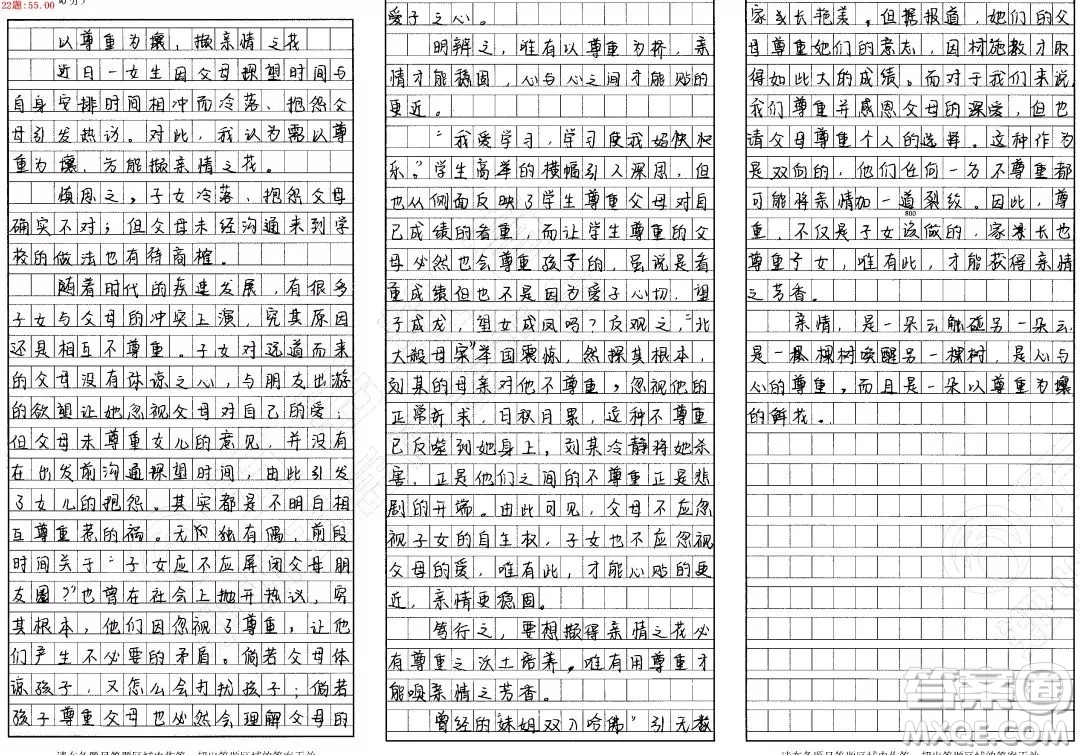 22题:55.00
以尊重为壤，撷亲情之花
近日一女生因父母探望时间与
自身安排时间相冲而冷落、抱怨父
母引发热访。对此，我认为需以尊
重为壤，方能撷亲情之花。
慎思之，子女冷落、抱怨父母
确实不对；但父母未经沟通来到学
校的做法也有待商榷。
随着时代的疾速发展，有很多
子女与父母的冲突上演，究其原因
还是相互不尊重。子女对远道而来
的父母没有体谅之心，与朋友出游
的欲望让她忽视父母对自己的爱；
但父母未尊重女儿的意见，并没有
在出发前沟通探望时间，由此引发
了女儿的抱怨。其实都是不明白相
互尊重惹的祸。无独有偶，前段
时间关于“子女应不应屏闭父母朋
友圈？”也曾在社会上抛开热议，究
其根本，他们因忽视了尊重，让他
们产生不必要的矛盾。倘若父母体
谅孩子，又怎么会打扰孩子；倘若
孩子尊重父母也必然会理解父母的
爱子之心。
明辨之，唯有以尊重为桥，亲
情才能稳固，心与心之间才能贴的
更近。
“我爱学习，学习使我妈快
乐。”学生高举的横幅引人深思，但
也从侧面反映了学生尊重父母对自
己成绩的看重，而让学生尊重的父
母必然也会尊重孩子的，虽说是看
重成绩但也不是因为爱子心切，望
子成龙，望女成凤吗？反观之，“北
大殺母案”举国震惊，然探其根本，
刘某的母亲对他不尊重，忽视他的
正常祈求，日积月累，这种不尊重
已反噬到她身上，刘某冷静将她杀
害，正是他们之间的不尊重正是悲
剧的开端。由此可见，父母不应忽
视子女的自主权，子女也不应忽视
父母的爱，唯有此，才能心贴的更
近，亲情更稳固。
笃行之，要想撷得亲情之花必
有尊重之沃土培养。唯有用尊重才
能嗅亲情之芳香。
曾经的“妹姐双入哈佛”引无数
家长艳羡。但据报道，她们的父
母尊重她们的意志，因材施教才取
得如此大的成绩。而对于我们来说，
我们尊重并感恩父母的深爱，但也
请父母尊重个人的选择。这种作为
是双向的，他们任何一方不尊重都
可能将亲情加一道裂纹。因此，尊
重，不仅是子女该做的，家长也
800
尊重子女，唯有此，才能获得亲情
之芳香。
亲情，是一朵云能碰另一朵云，
是一棵树唤醒另一棵树，是心与
心的尊重，而且是一朵以尊重为壤
的鲜花。
请在各题目答题区域内作答，超出答题区域的答案无效
答案圈